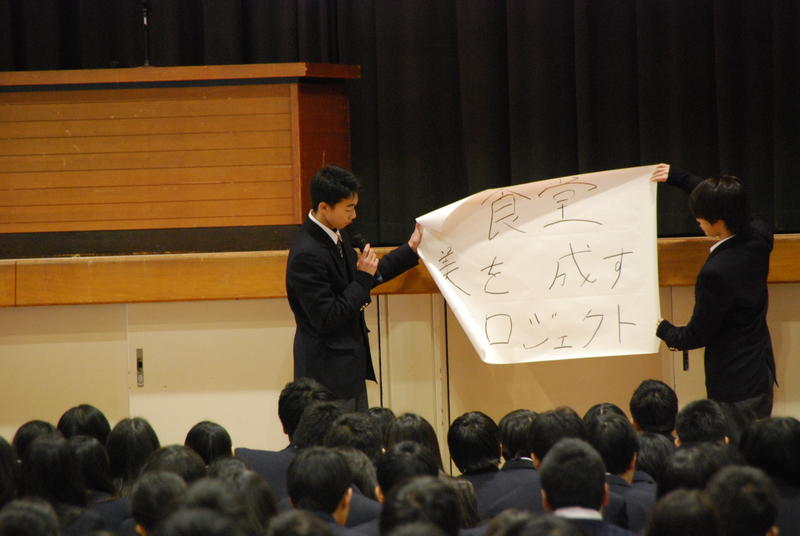 食堂
美を 成す
ロジェクト